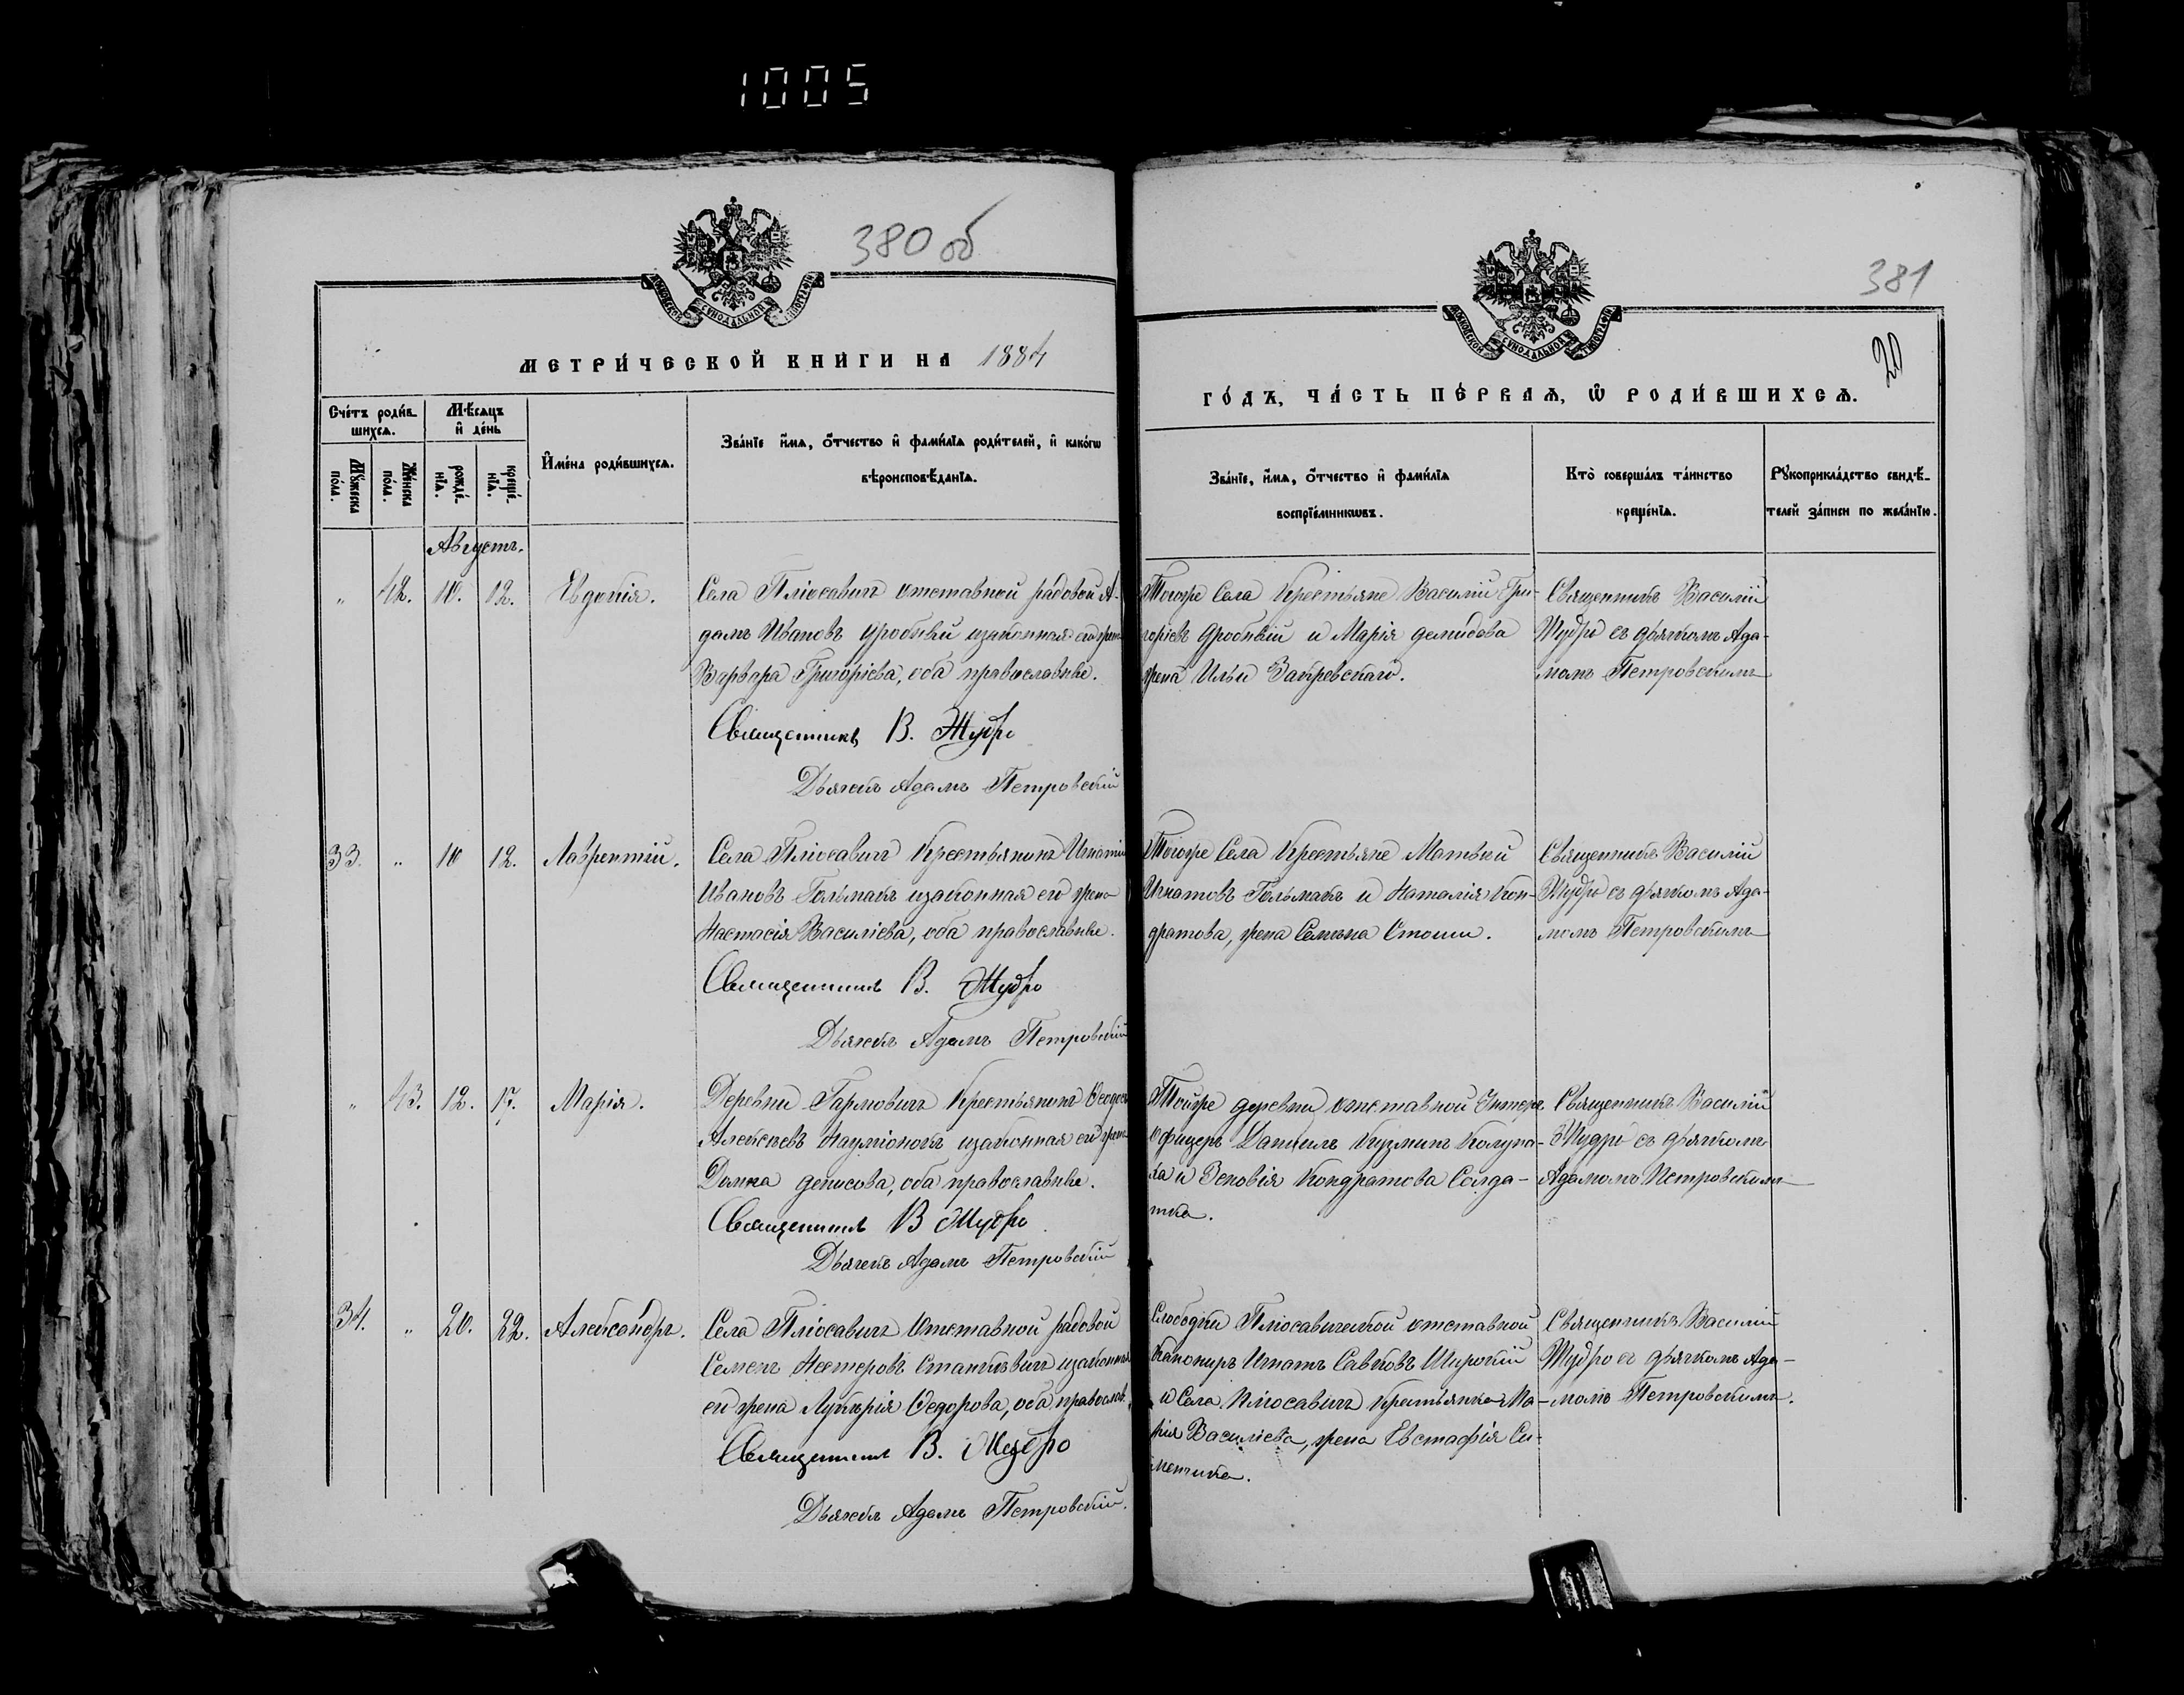 1005
380 об
МОСКОВСКОЙ СѴНОДАЛЬНОЙ ТИПОГРАФІИ
МЕТРИ́ЧЕСКОЙ КНИ́ГИ НА 1884
Сче́тъ роди́в-
шихсѧ.
Мꙋ́жеска
по́ла.
Же́нска
по́ла.
Мѣ́сѧцъ
и҆ де́нь
рожде́-
нїѧ.
креще́-
нїѧ.
И҆мена̀ роди́вшихсѧ.
Зва́нїе и҆́мѧ, ѻ҆́тчество и҆ фами́лїѧ роди́телей, и҆ како́гѡ
вѣроисповѣ́данїѧ.
Августъ.
" 42. 10. 12. Евдокія.
Села Плюсавичъ отставной рядовой А-
дамъ Ивановъ Дробный изаконная его жена
Варвара Григоріева, оба православные.
Священникъ В. Жудро
Дьячекъ Адамъ Петровскій
33. " 10 12. Лаврентій.
Села Плюсавичъ Крестьянинъ Игнатій
Ивановъ Гольмакъ изаконная его жена
Настасія Василіева, оба православные.
Священникъ В. Жудро
Дьячекъ Адамъ Петровскій
" 43. 12. 17. Марія.
Деревни Гармовичъ Крестьянинъ
Алексѣевъ Наумюнокъ изаконная его жена
Домна денисова, оба православные.
Священникъ В Жудро
Дьячекъ Адамъ Петровскій
34. " 20. 22. Александръ.
Села Плюсавичъ Отставной рядовой
Семенъ Нестеровъ Станкѣвичъ изаконная
его жена Лукерія Ѳедорова, оба православ.
Священникъ В. Жудро
Дьячекъ Адамъ Петровскій.
381
20
МОСКОВСКОЙ СѴНОДАЛЬНОЙ ТИПОГРАФІИ
ГО́ДЪ, ЧА́СТЬ ПЕ́РВАѦ, Ѡ҆ РОДИ́ВШИХСѦ.
Зва́нїе, и҆́мѧ, ѻ҆́тчество и҆ фами́лїѧ
воспрїе́мникѡвъ.
Кто̀ соверша́лъ та́инство
креще́нїѧ.
Рꙋкоприкла́дство свидѣ́-
телей за́писи по жела́нїю.
Тогоже Села Крестьяне Василій Гри-
горіевъ Дробный и Марія демидова
жена Ильи Закревскаго.
Священникъ Василій
Жудро съ дьячкомъ Ада-
момъ Петровскимъ
Тогоже Села Крестьяне Матвей
Игнатовъ Гольмакъ и Наталія Кон-
дратова, жена Семена Стоши.
Священникъ Василій
Жудро съ дьячкомъ Ада-
момъ Петровскимъ
Тойже деревни отставной Унтеръ
Офицеръ Даніилъ Кузминъ
и Зеновія Кондратова Солда-
тка.
Священникъ Василій
Жудро съ дьячкомъ
Адамомъ Петровскимъ
Слободки Плюсавичской отставной
Канониръ Игнатъ Савковъ Широкій
и Села Плюсавичъ Крестьянка Ма-
рія Василіева, жена Евстафія Си-
Священникъ Василій
Жудро съ дьячкомъ Ада-
момъ Петровскимъ.